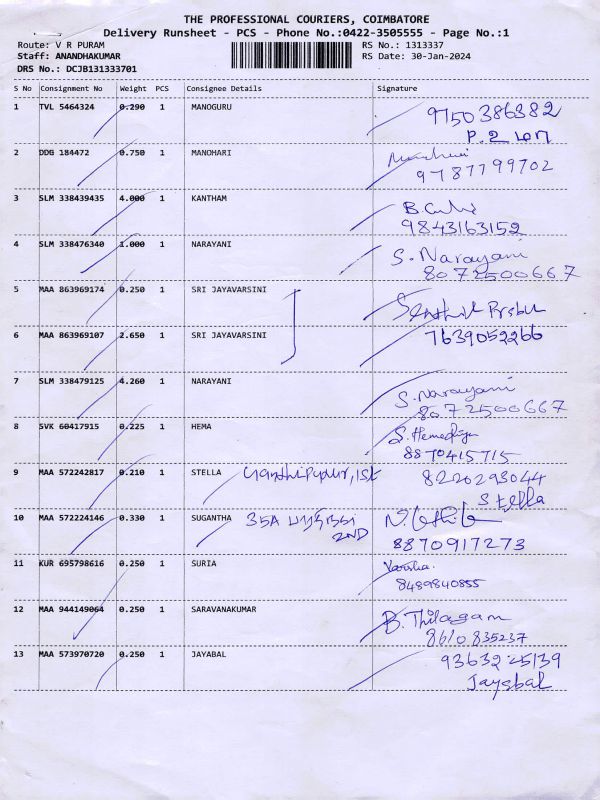 THE PROFESSIONAL COURIERS, COIMBATORE
Delivery Runsheet - PCS - Phone No.:0422-3505555 - Page No.:1
Route: V R PURAM RS No.: 1313337
Staff: ANANDHAKUMAR RS Date: 30-Jan-2024
DRS No.: DCJB131333701
S No Consignment No Weight PCS Consignee Details Signature
1 TVL 5464324 0.290 1 MANOGURU 9750386382
2 DDG 184472 0.750 1 MANOHARI
9787799702
3 SLM 338439435 4.000 1 KANTHAM
9843163152
4 SLM 338476340 1.000 1 NARAYANI S. Narayani
8072500667
5 MAA 863969174 0.250 1 SRI JAYAVARSINI Senthil Prabu
6 MAA 863969107 2.650 1 SRI JAYAVARSINI 7639052266
7 SLM 338479125 4.260 1 NARAYANI S. Narayani
8072500667
8 SVK 60417915 0.225 1 HEMA
8870415715
9 MAA 572242817 0.210 1 STELLA Gandhipuram, 1st 8220293044
Stella
10 MAA 572224146 0.330 1 SUGANTHA 35A 2ND
8870917273
11 KUR 695798616 0.250 1 SURIA Varsha.
8489840855
12 MAA 944149064 0.250 1 SARAVANAKUMAR B. Thilagam
8610835237
13 MAA 573970720 0.250 1 JAYABAL 9363225139
Jayabal